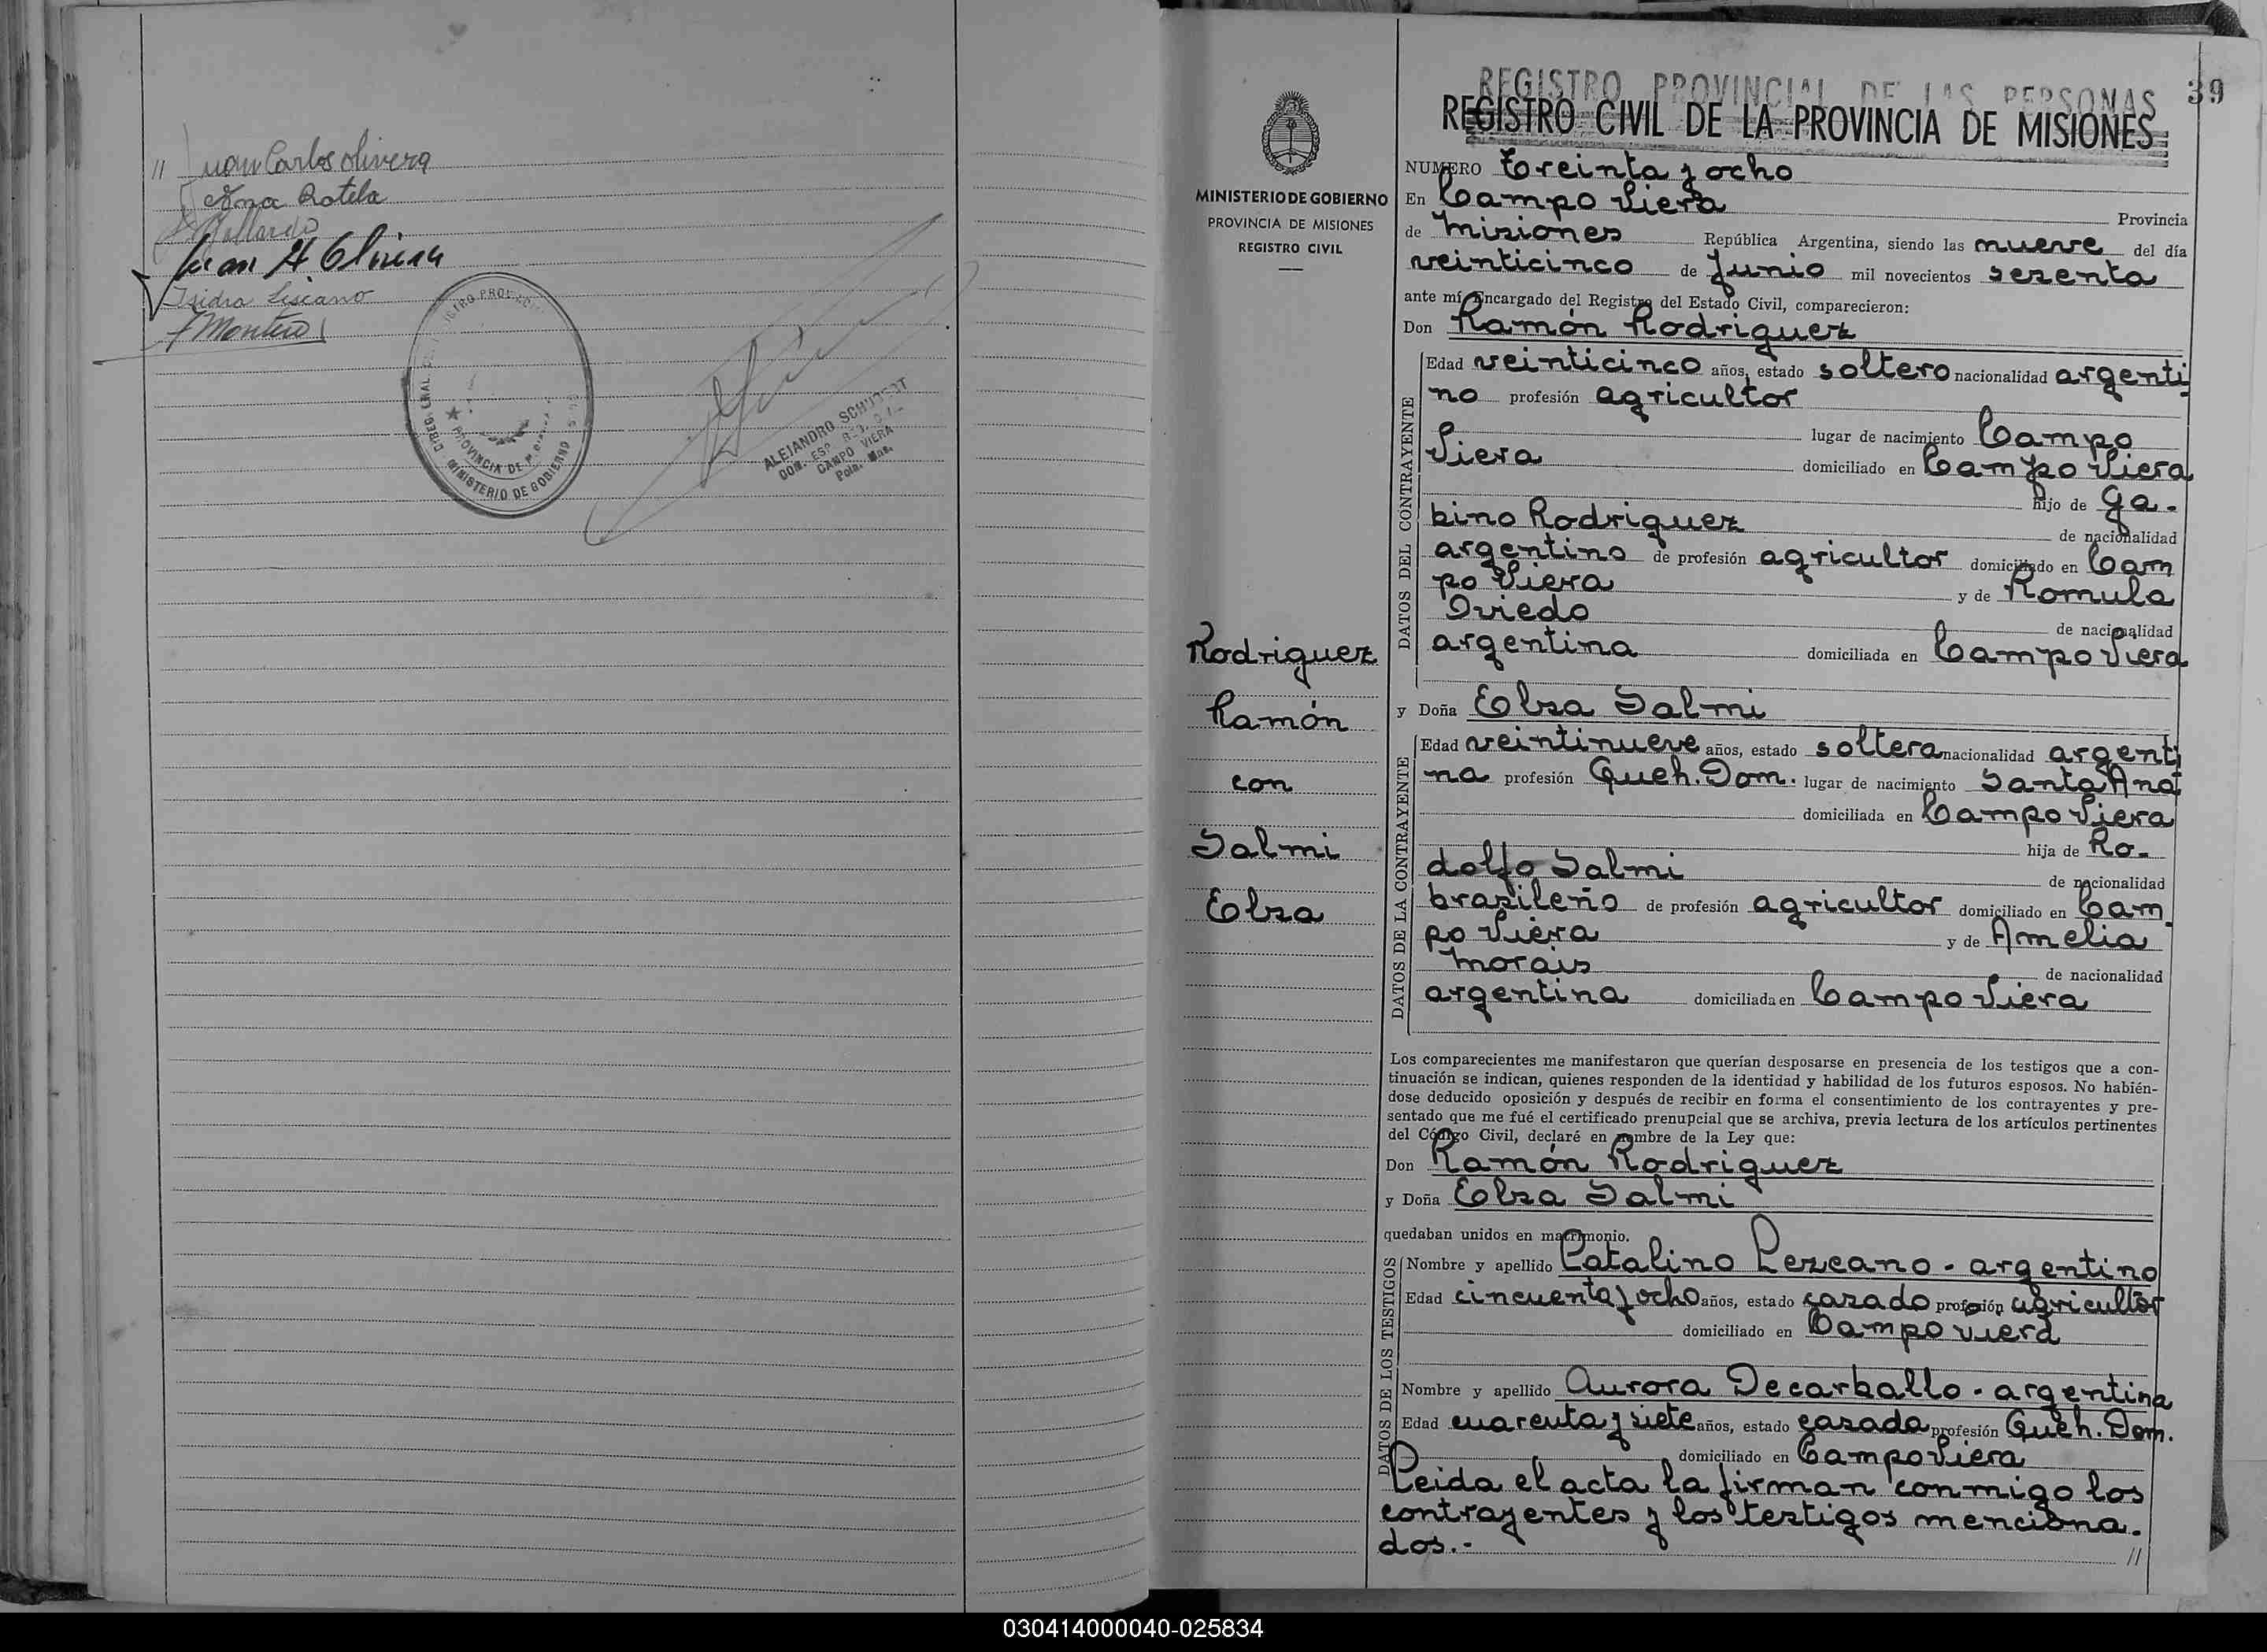 // Juan Carlos Olivera
Ana Rotela
Juan A. Olivera
Isidra Liscano
Montero
MINISTERIO DE GOBIERNO
PROVINCIA DE MISIONES
ALEJANDRO SCHUBERT
CAMPO VIERA
39
REGISTRO PROVINCIAL DE LAS PERSONAS
REGISTRO CIVIL DE LA PROVINCIA DE MISIONES
MINISTERIO DE GOBIERNO
PROVINCIA DE MISIONES
REGISTRO CIVIL
Rodriguez
Ramón
con
Salmi
Elsa
NUMERO Treinta y ocho
En Campo Viera Provincia
de Misiones República Argentina, siendo las nueve del día
veinticinco de Junio mil novecientos sesenta
ante mí Encargado del Registro del Estado Civil, comparecieron:
Don Ramón Rodriguez
DATOS DEL CONTRAYENTE
Edad veinticinco años, estado soltero nacionalidad argenti
no profesión agricultor
lugar de nacimiento Campo
Viera domiciliado en Campo Viera
hijo de Ga-
bino Rodriguez de nacionalidad
argentino de profesión agricultor domiciliado en Cam
po Viera y de Romula
Oviedo de nacionalidad
argentina domiciliada en Campo Viera
y Doña Elsa Salmi
DATOS DE LA CONTRAYENTE
Edad veintinueve años, estado soltera nacionalidad argenti
na profesión Queh. Dom. lugar de nacimiento Santa Ana
domiciliada en Campo Viera
hija de Ro-
dolfo Salmi de nacionalidad
brasileño de profesión agricultor domiciliado en Cam
po Viera y de Amelia
Morais de nacionalidad
argentina domiciliada en Campo Viera
Los comparecientes me manifestaron que querían desposarse en presencia de los testigos que a con-
tinuación se indican, quienes responden de la identidad y habilidad de los futuros esposos. No habién-
dose deducido oposición y después de recibir en forma el consentimiento de los contrayentes y pre-
sentado que me fué el certificado prenupcial que se archiva, previa lectura de los artículos pertinentes
del Código Civil, declaré en nombre de la Ley que:
Don Ramón Rodriguez
y Doña Elsa Salmi
quedaban unidos en matrimonio.
DATOS DE LOS TESTIGOS
Nombre y apellido Catalino Lezcano - argentino
Edad cincuenta y ocho años, estado casado profesión agricultor
domiciliado en Campo Viera
Nombre y apellido Aurora Decarballo - argentina
Edad cuarenta y siete años, estado casada profesión Queh. Dom.
domiciliado en Campo Viera
Leida el acta la firman conmigo los
contrayentes y los testigos menciona-
dos.- //
030414000040-025834